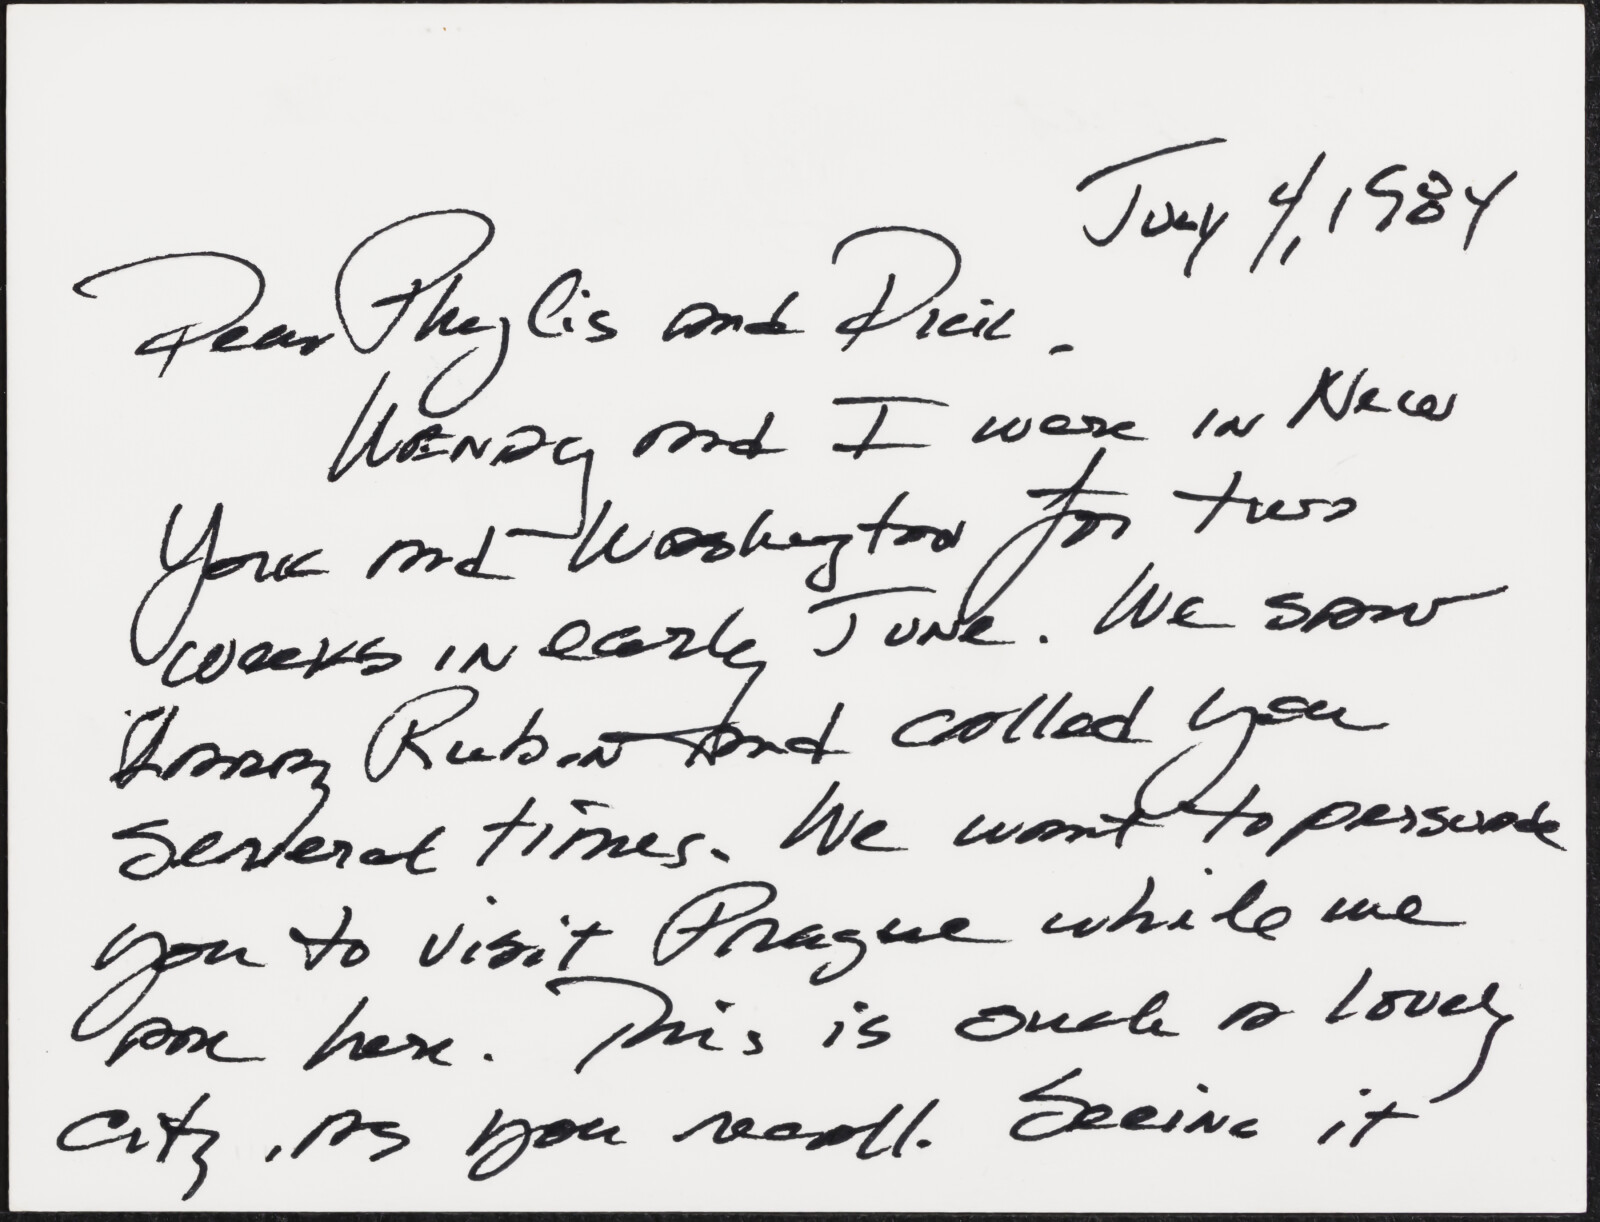 July 4, 1984
Dear Phyllis and Dick.
Wendy and I were in New
York and Washington for two
weeks in early June. We saw
Larry Rubin and called you
several times. We want to persuade
you to visit Prague while we
are here. This is such a lovely
city, as you recall. Seeing it